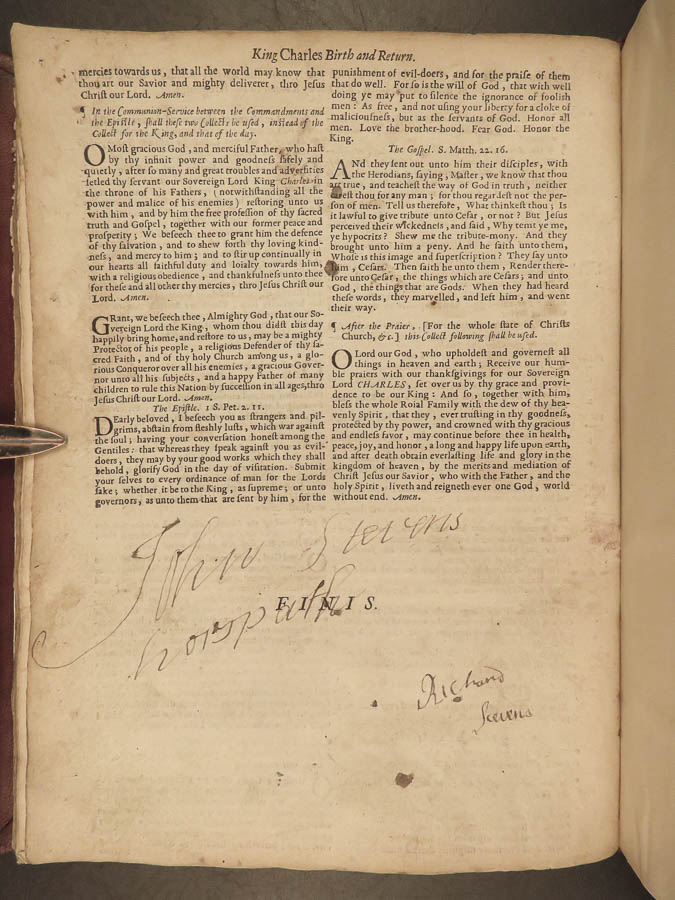 King Charles Birth and Return.
mercies towards us, that all the world may know that
thou art our Savior and mighty deliverer, thro Jesus
Chriſt our Lord. Amen.
¶ In the Communion-Service between the Commandments and
the Epiſtle, ſhall theſe two Collects be uſed, inſtead of the
Collect for the King, and that of the day.
O Moſt gracious God, and merciful Father, who haſt
by thy infinit power and goodneſs ſafely and
quietly, after ſo many and great troubles and adverſities
ſetled thy ſervant our Sovereign Lord King Charles in
the throne of his Fathers, (notwithſtanding all the
power and malice of his enemies) reſtoring unto us
with him, and by him the free profeſſion of thy ſacred
truth and Goſpel, together with our former peace and
proſperity; We beſeech thee to grant him the defence
of thy ſalvation, and to ſhew forth thy loving kind-
neſs, and mercy to him; and to ſtir up continually in
our hearts all faithful duty and loialty towards him,
with a religious obedience, and thankfulneſs unto thee
for theſe and all other thy mercies, thro Jeſus Chriſt our
Lord. Amen.
GRant, we beſeech thee, Almighty God, that our So-
vereign Lord the King, whom thou didſt this day
happily bring home, and reſtore to us, may be a mighty
Protector of his people, a religious Defender of thy ſa-
cred Faith, and of thy holy Church among us, a glo-
rious Conqueror over all his enemies, a gracious Gover-
nor unto all his ſubjects, and a happy Father of many
children to rule this Nation by ſucceſſion in all ages, thro
Jeſus Chriſt our Lord. Amen.
The Epiſtle. 1 S. Pet. 2. 11.
DEarly beloved, I beſeech you as ſtrangers and pil-
grims, abſtain from fleſhly luſts, which war againſt
the ſoul; having your converſation honeſt among the
Gentiles: that whereas they ſpeak againſt you as evil-
doers, they may by your good works which they ſhall
behold, glorify God in the day of viſitation. Submit
your ſelves to every ordinance of man for the Lords
ſake; whether it be to the King, as ſupreme; or unto
governors, as unto them that are ſent by him, for the
puniſhment of evil-doers, and for the praiſe of them
that do well. For ſo is the will of God, that with well
doing ye may put to ſilence the ignorance of fooliſh
men: As free, and not uſing your liberty for a cloke of
maliciouſneſs, but as the ſervants of God. Honor all
men. Love the brother-hood. Fear God. Honor the
King.
The Goſpel. S. Matth. 22. 16.
ANd they ſent out unto him their diſciples, with
the Herodians, ſaying, Maſter, we know that thou
art true, and teacheſt the way of God in truth, neither
careſt thou for any man; for thou regardeſt not the per-
ſon of men. Tell us therefore, What thinkeſt thou; Is
it lawful to give tribute unto Ceſar, or not? But Jeſus
perceived their wickedneſs, and ſaid, Why temt ye me,
ye hypocrites? Shew me the tribute-mony. And they
brought unto him a peny. And he ſaith unto them,
Whoſe is this image and ſuperſcription? They ſay unto
him, Ceſars. Then ſaith he unto them, Render there-
fore unto Ceſar, the things which are Ceſars; and unto
God, the things that are Gods. When they had heard
theſe words, they marvelled, and left him, and went
their way.
¶ After the Praier, [For the whole ſtate of Chriſts
Church, &c.] this Collect following ſhall be uſed.
O Lord our God, who upholdeſt and governeſt all
things in heaven and earth; Receive our hum-
ble praiers with our thankſgivings for our Sovereign
Lord CHARLES, ſet over us by thy grace and provi-
dence to be our King: And ſo, together with him,
bleſs the whole Roial Family with the dew of thy hea-
venly Spirit, that they, ever truſting in thy goodneſs,
protected by thy power, and crowned with thy gracious
and endleſs favor, may continue before thee in health,
peace, joy, and honor, a long and happy life upon earth,
and after death obtain everlaſting life and glory in the
kingdom of heaven, by the merits and mediation of
Chriſt Jesus our Savior, who with the Father, and the
holy Spirit, liveth and reigneth ever one God, world
without end. Amen.
John Stevens
FINIS.
horspath
Richard
Stevens